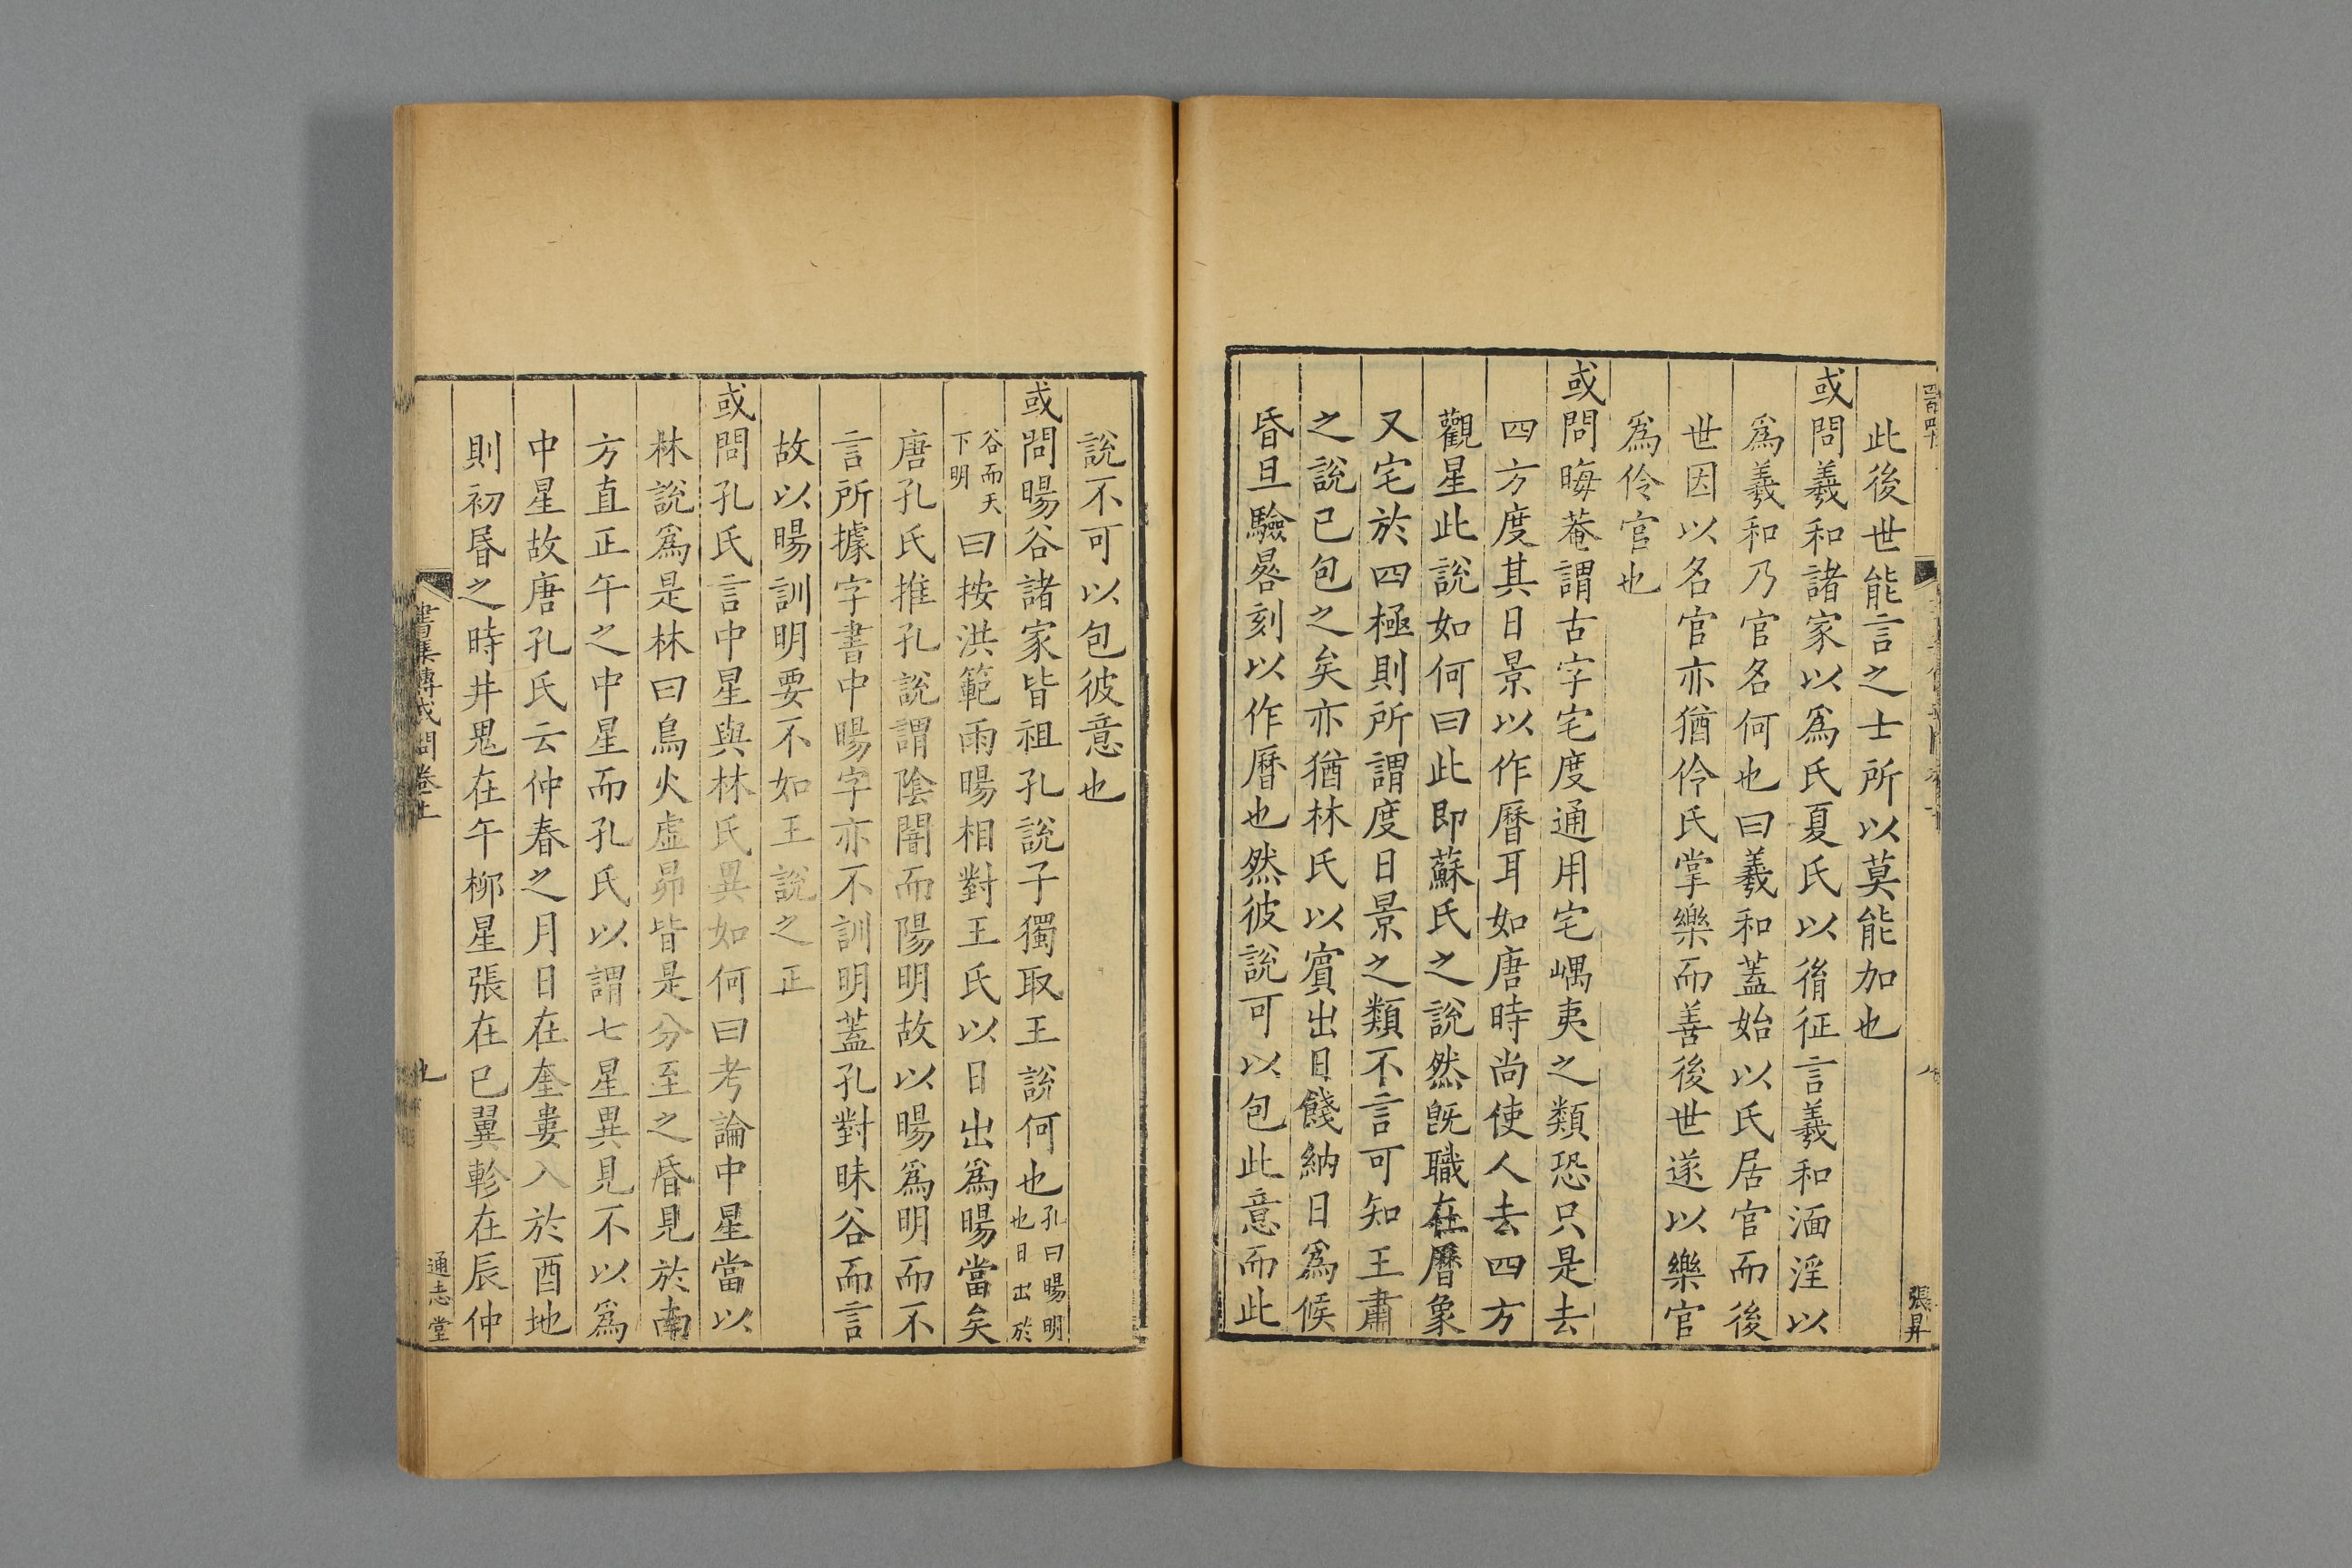 此後世能言之士所以莫能加也
或問羲和諸家以爲氏夏氏以胤征言羲和湎淫以
爲羲和乃官名何也曰羲和蓋始以氏居官而後
世因以名官亦猶伶氏掌樂而善後世遂以樂官
爲伶官也
或問晦菴謂古字宅度通用宅嵎夷之類恐只是去
四方度其日景以作曆耳如唐時尚使人去四方
觀星此說如何曰此即蘇氏之說然旣職在曆象
又宅於四極則所謂度日景之類不言可知王肅
之說已包之矣亦猶林氏以賓出日餞納日爲候
昏旦驗晷刻以作曆也然彼說可以包此意而此
張昇
說不可以包彼意也
或問暘谷諸家皆祖孔說子獨取王說何也孔曰暘明也日出於
谷而天下明曰按洪範雨暘相對王氏以日出爲暘當矣
唐孔氏推孔說謂陰闇而陽明故以暘爲明而不
言所據字書中暘字亦不訓明蓋孔對昧谷而言
故以暘訓明要不如王說之正
或問孔氏言中星與林氏異如何曰考論中星當以
林說爲是林曰鳥火虛昴皆是分至之昏見於南
方直正午之中星而孔氏以謂七星異見不以爲
中星故唐孔氏云仲春之月日在奎婁入於酉地
則初昏之時井鬼在午柳星張在巳翼軫在辰仲
書集傳或問卷上
九
通志堂